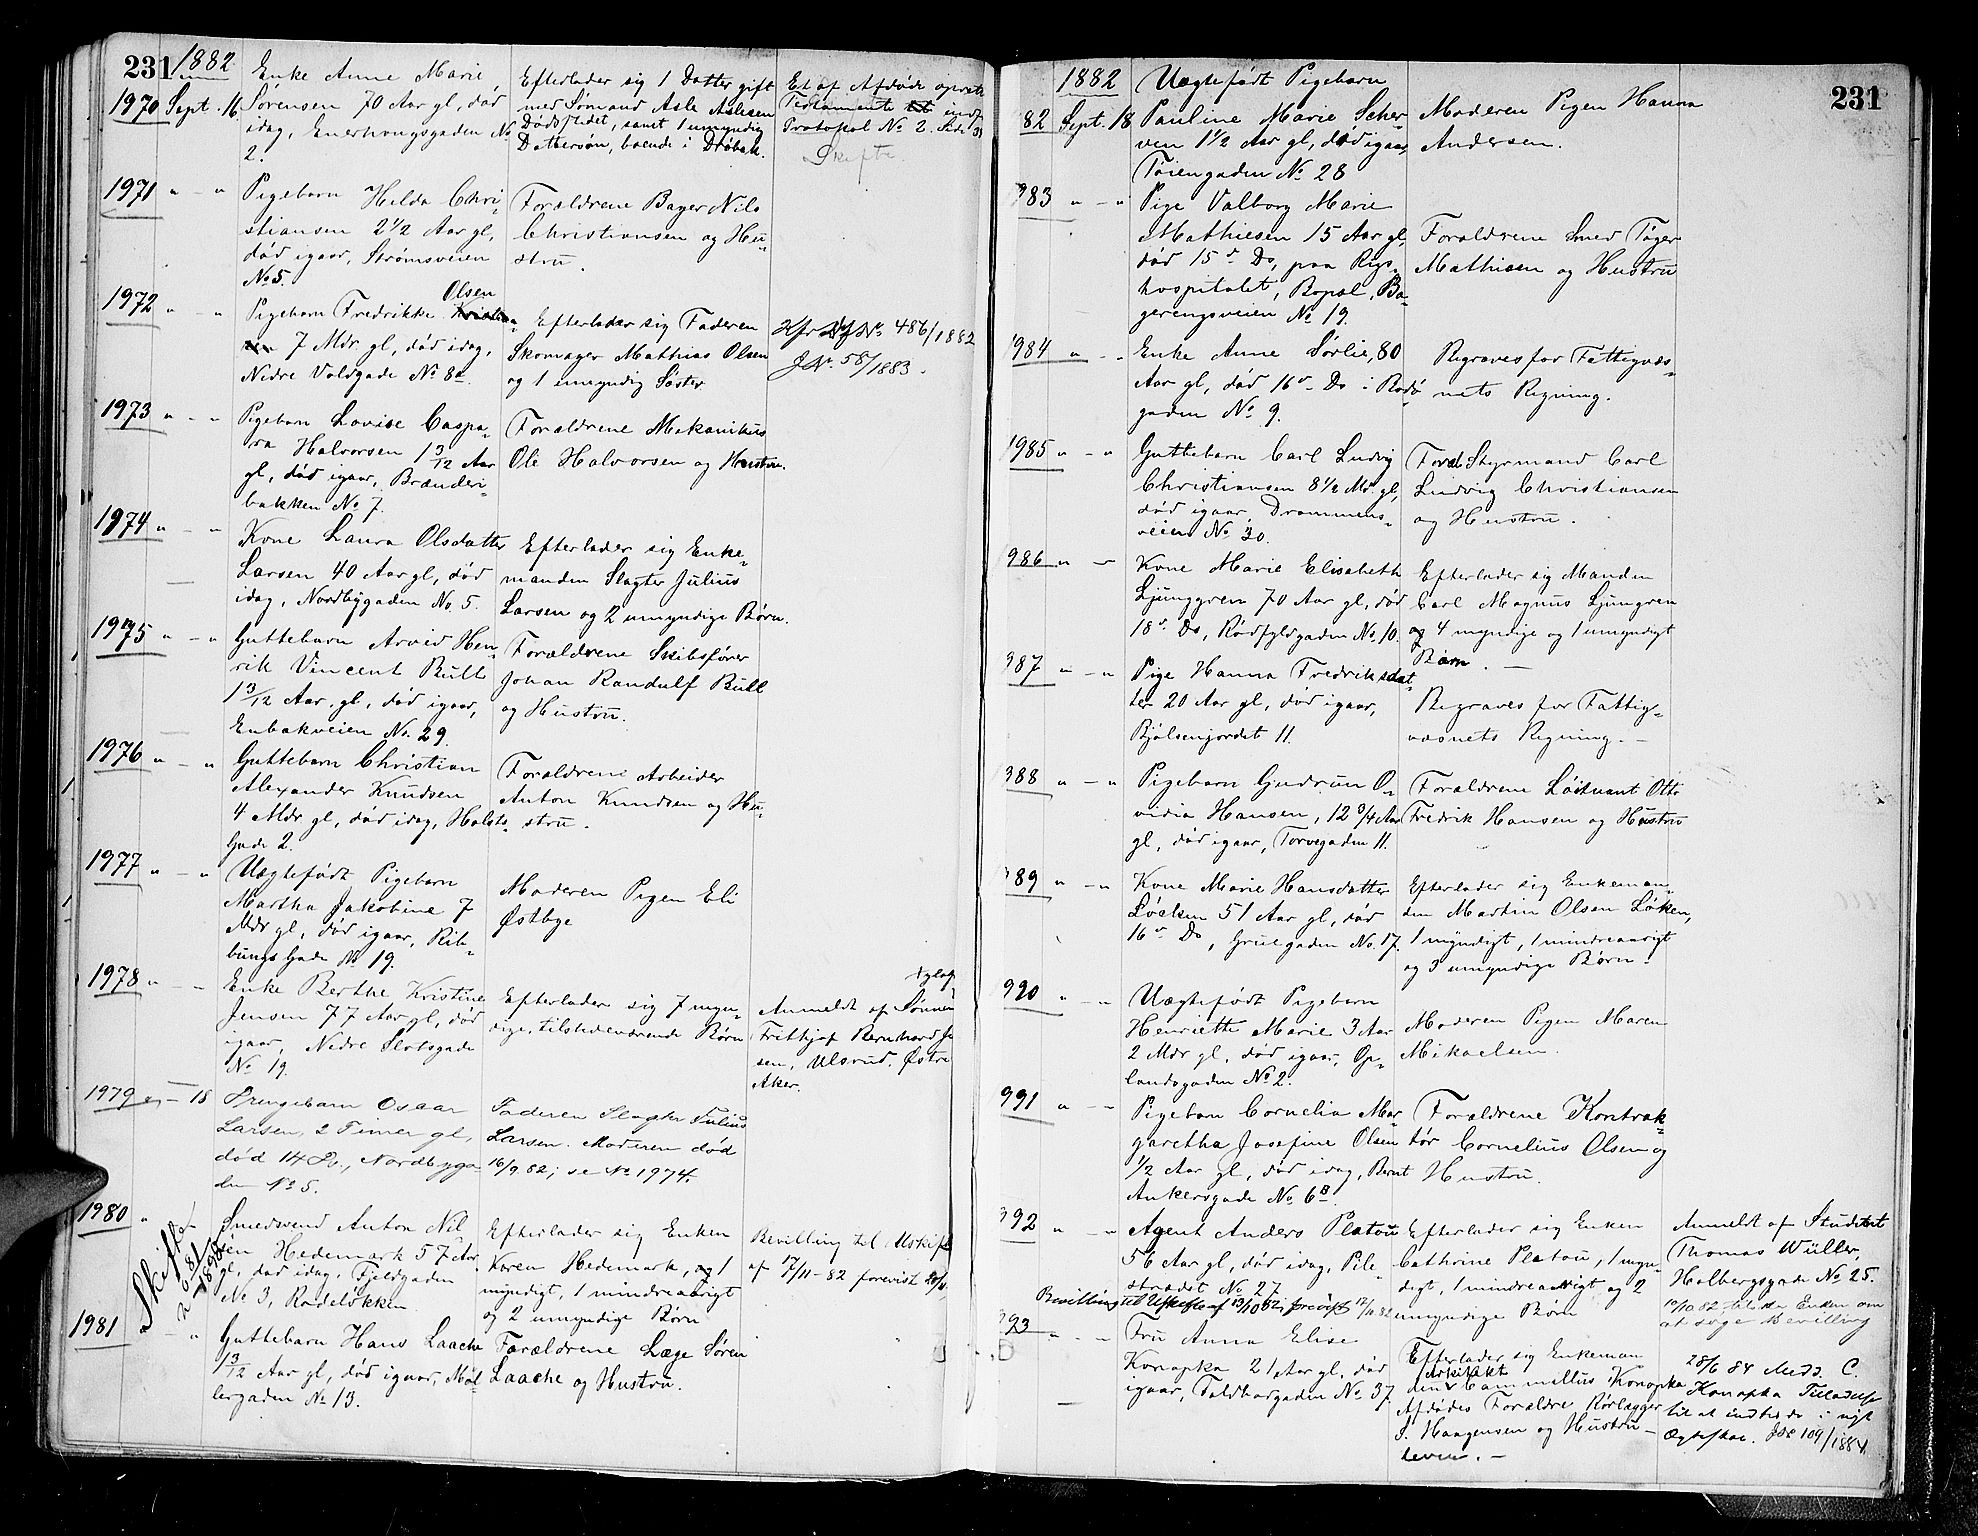 231
1882
1970 Sept. 16
Enke Anne Marie
Sørensen 70 Aar gl, død
idag, Enerhougsgaden No
2.
Efterlader sig 1 Datter gift
med Sømand Asle Aslesen
Dødsstedet, samt 1 umyndig
Dattersøn, boende i Drøbak.
Et af Afdøde oprett
Testamente indf
Protokol No 2. Side
Skifte.
1971 " - "
Pigebarn Hilda Chri-
stiansen 2 1/2 Aar gl,
død igaar, Strømsveien
No 5.
Forældrene Bager Nils
Christiansen og Hu-
stru.
1972 " - "
Olsen
Pigebarn Fredrikke
7 Mdr gl, død idag,
Nedre Voldgade No 8a
Efterlader sig Faderen
Skomager Mathias Olsen
og 1 umyndig Søster
No 486/1882
J.N. 58/1883.
1973 " - "
Pigebarn Lovise Caspa-
ra Halvorsen 1 3/12 Aar
gl, død igaar, Brænderi-
bakken No 7.
Forældrene Mekanikus
Ole Halvorsen og Hustru.
1974 " - "
Kone Laura Olsdatter
Larsen 40 Aar gl, død
idag, Nordbygaden No. 5.
Efterlader sig Enke-
manden Slagter Julius
Larsen og 2 umyndige Børn.
1975 " - "
Guttebarn Arvid Hen-
rik Vincent Bull
1 3/12 Aar. gl, død igaar,
Enebakveien No. 29.
Forældrene Skibsfører
Johan Randulf Bull
og Hustru.
1976 " - "
Guttebarn Christian
Alexander Knudsen
4 Mdr gl, død idag, Holsts
Gade 2.
Forældrene Arbeider
Anton Knudsen og Hu-
stru.
1977 " - "
Uægtefødt Pigebarn
Martha Jakobine 7
Mdr gl, død igaar, Rib-
bungs Gade No 19.
Moderen Pigen Eli
Østbye
1978 " - -
Enke Berthe Kristine
Jensen 77 Aar gl, død
igaar, Nedre Slotsgade
No 19.
Efterlader sig 7 myn-
dige, tilstedeværende Børn
Anmeldt af Sønnen
Frithjof Bernhard Je
sen, Ulsrud, Østre
Aker.
1979 " - 18
Drengebarn Oscar
Larsen, 2 Timer gl,
død 14 ds., Nordbyga-
den No 5.
Faderen Slagter Julius
Larsen. Moderen død
16/9 82; se No 1974.
1980 " -
Skifte
Smedsvend Anton Nil
sen Hedemark 57 Aar
gl, død idag, Fjeldgaden
No 3, Rodeløkken.
Efterlader sig Enken
Karen Hedemark, og 1
myndigt, 1 mindreaarigt
og 2 umyndige Børn
Bevilling til Uskift
af 17/11-82 forevist
1981 - "
Guttebarn Hans Laache
1 3/12 Aar gl, død igaar, Møl-
lergaden No 13.
Forældrene Læge Søren
Laache og Hustru.
231
1882
82 Sept. 18
Uægtefødt Pigebarn
Pauline Marie Scher-
ven 1 1/2 Aar gl, død igaar,
Tøiengaden No 28
Moderen Pigen Hanna
Andersen.
983 " - "
Pige Valborg Marie
Mathiesen 15 Aar gl,
død 15de Ds, paa Rigs-
hospitalet, Bopæl, Bø-
gerengsveien No 19.
Forældrene Smed Tøger
Mathisen og Hustru
1984 " - -
Enke Anne Sørlie, 80
Aar gl, død 16de Ds i Bodø
gaden No 9.
Begraves for Fattigvæs-
nets Regning.
1985 " - "
Guttebarn Carl Ludvig
Christiansen 8 1/2 Md. gl,
død igaar, Drammens-
veien No 30.
Foræl. Styrmand Carl
Ludvig Christiansen
og Hustru.
986 " -
Kone Marie Elisabeth
Ljunggren 70 Aar gl, død
18de Ds, Rødfyldgaden No. 10.
Efterlader sig Manden
Carl Magnus Ljungren
og 4 myndige og 1 umyndigt
Børn. -
987 " - "
Pige Hanna Fredriksdat-
ter 20 Aar gl, død igaar,
Bjølsenjordet 11.
Begraves for Fattig-
væsnets Regning. -
988 " - "
Pigebarn Gudrun O-
vidia Hansen, 12 3/4 Aar
gl, død igaar, Torvegaden 11.
Forældrene Løitnant Otto
Fredrik Hansen og Hustru
989 " - "
Kone Marie Hansdatter
Løcken 51 Aar gl, død
16de Ds, Gruegaden No. 17.
Efterlader sig Enkeman-
den Martin Olsen Løken,
1 myndigt, 1 mindreaarigt
og 3 umyndige Børn.
990 " - "
Uægtefødt Pigebarn
Henriette Marie 3 Aar
2 Mdr gl, død igaar, Op-
landsgaden No 2.
Moderen Pigen Maren
Mikaelsen.
991 " - -
Pigebarn Cornelia Mar-
garetha Josefine Olsen
1/2 Aar gl, død idag, Bernt
Ankersgade No 6B.
Forældrene Kontrak-
tør Cornelius Olsen og
Hustru.
992 " - "
Agent Anders Platou
56 Aar gl, død idag, Pile-
strædet No 27
Bevilling til Uskifte af 13/10 82, forevist 17/11 82
Efterlader sig Enken
Cathrine Platou, 1 myn-
digt, 1 mindreaarigt og 2
umyndige Børn
Anmeldt af Studiosus
Thomas Wüller,
Holbergsgade No 25.
10/10 82 Enken om
at søge Bevilling
993 " - -
Fru Anna Elise
Konopka 21 Aar gl, død
igaar, Toldbodgaden No. 37.
Efterlader sig Enkeman
Arkitekt
den Cammillus Konopka
Afdødes Forældre Rørlægger
J. Haagensen og Hustru -
lever. -
28/6 84 C.
Konopka Tilladelse
til at indtræde i nyt
Ægteskab. 109/1884.